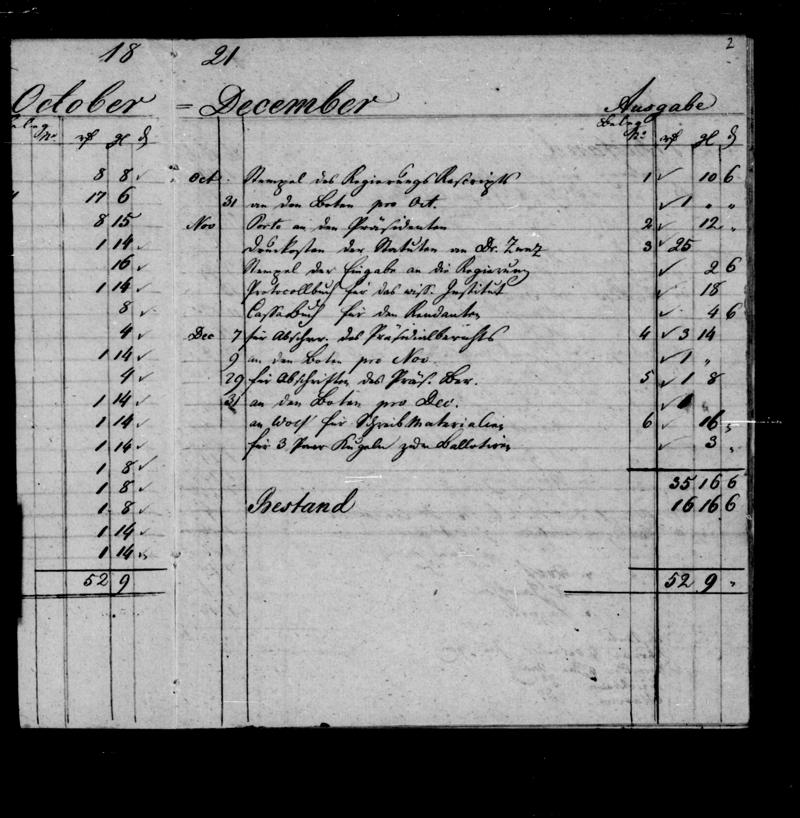 2
18 21
October = December Ausgabe
Beleg
No. rf gl d
Beleg
No. rf gl d
8 8 ✓
Oct. Stempel des Regierungs Rescripts 1 ✓ 10 6
17 6
31 an den Boten pro Oct. ✓ 1 " "
8 15
Nov Porto an den Präsidenten 2 ✓ 12 "
1 14 ✓
Druckosten der Statuten an Dr. Zunz 3 ✓ 25
16 ✓
Stempel der Eingabe an die Regierung ✓ 2 6
1 14 ✓
Protocollbuch für das wiss. Institut ✓ 18
8 ✓
Cassa Buch für den Rendanten ✓ 4 6
4 ✓
Dec 7 für Abschr. des Präsidialberichts 4 ✓ 3 14
1 14 ✓
9 an den Boten pro Nov. ✓ 1 "
4 ✓
29 für Abschriften des Präs. Ber. 5 ✓ 1 8
1 14 ✓
31 an den Boten pro Dec. ✓ 1
1 14 ✓
an Wolf für Schreib Materialien 6 ✓ 16 "
1 14 ✓
für 3 Paar Kugeln zum Ballotiren ✓ 3 "
1 8 ✓
1 8 ✓
35 16 6
1 8 ✓
Bestand 16 16 6
1 14 ✓
1 14
52 9
52 9 "